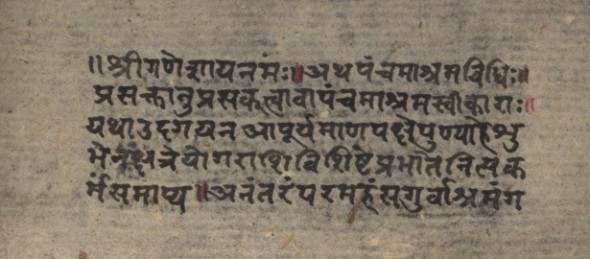 ॥श्रीगणेशायनमः॥अथपंचमाश्रमविधिः॥
प्रसक्तानुप्रसकत्वावापंचमाश्रमस्वीकारः॥
यथाउदगयनआपूर्यमाणपक्षेपुण्याहेशु
भेनक्षत्रेयोगराशिविशिष्टेप्रभातेनित्यक
र्मसमाप्य॥अनंतरंपरमहंसगुर्वाश्रमंग